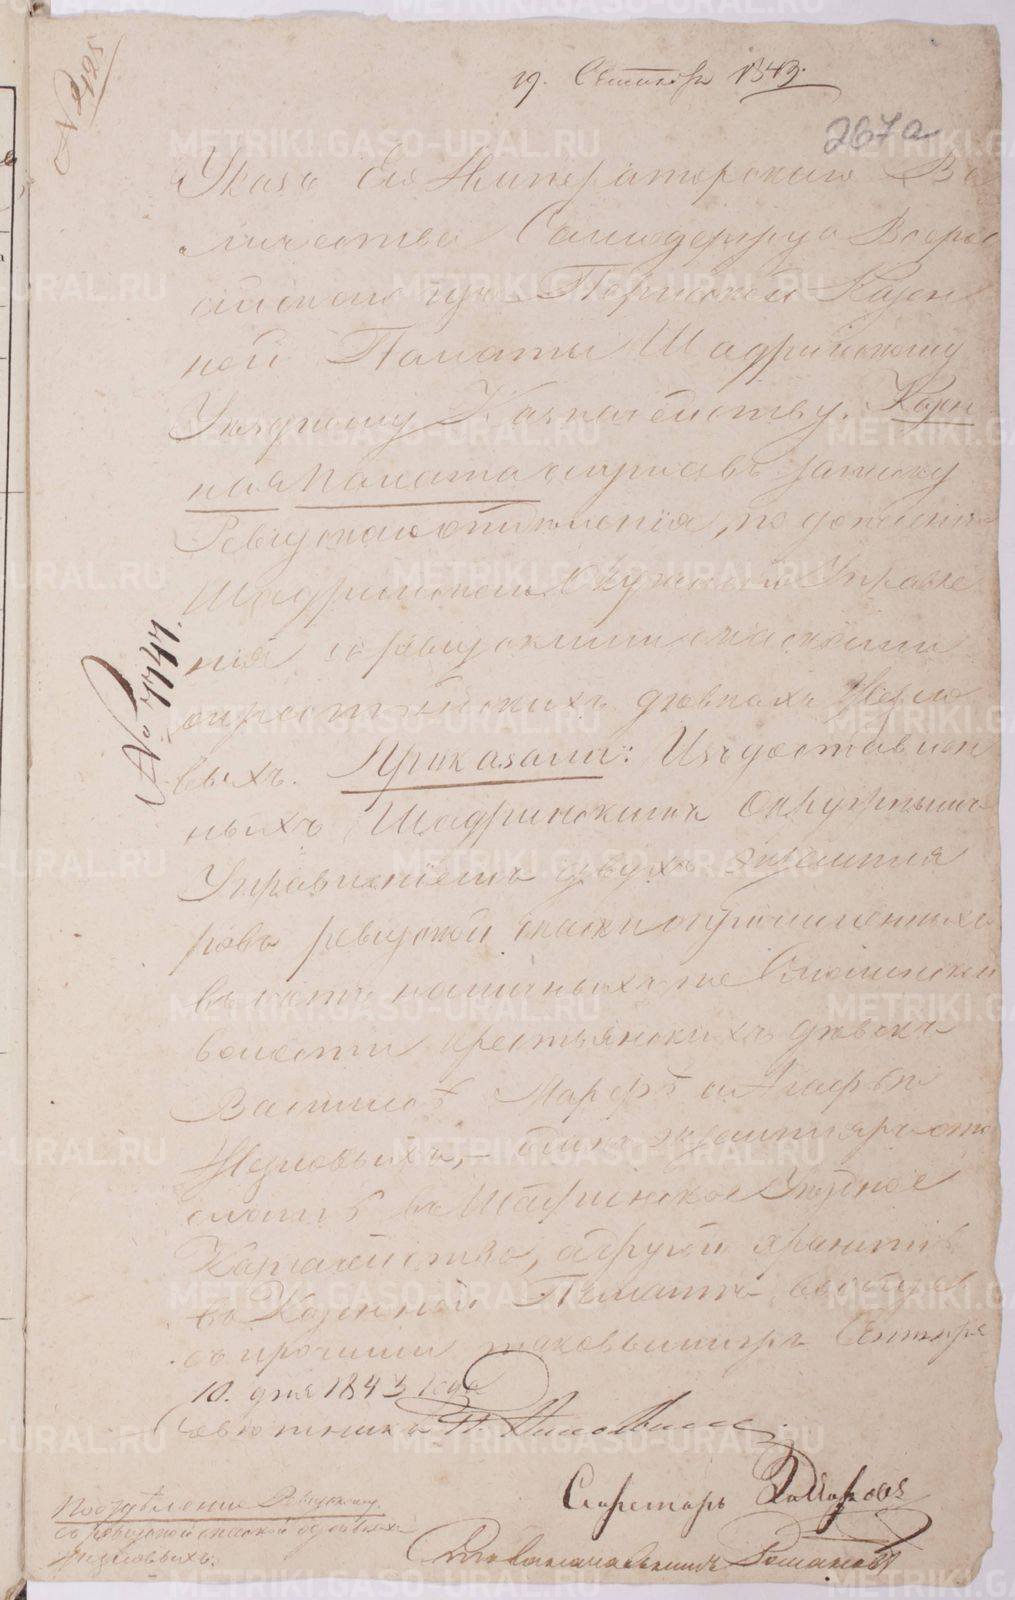 № 2125
19. Сентября 1843.
267а
Указъ Его Императорскаго Ве
личества Самодержца Всерос
сійскаго изъ Пермской Казен
ной Палаты Шадринскому
Уѣздному Казначейству. Казен
ная Палата слушавъ записку
Ревизскаго отдѣленія, по донесенію
Шадринскаго Окружнаго Управле
нія съ ревизскими сказками
о крестьянскихъ дѣвкахъ
выхъ. Приказали: Изъ доставлен
ныхъ Шадринскимъ Окружнымъ
Управленіемъ двухъ экземпля
ровъ ревизской сказки о причисленныхъ
въ Смолинской
волости крестьянскихъ дѣвокъ
Василисѣ, Марфѣ и Агафьѣ
одинъ экземпляръ ото
слать въ Шадринское Уѣздное
Казначейство, а другой хранить
въ Казенной Палатѣ
съ прочими таковыми. Сентября
10. дня 1843 года
Совѣтникъ
Секретарь
Столоначальникъ Романовъ
№ 7747.
По отдѣленію Ревизскому.
съ ревизской сказкой о дѣвкахъ